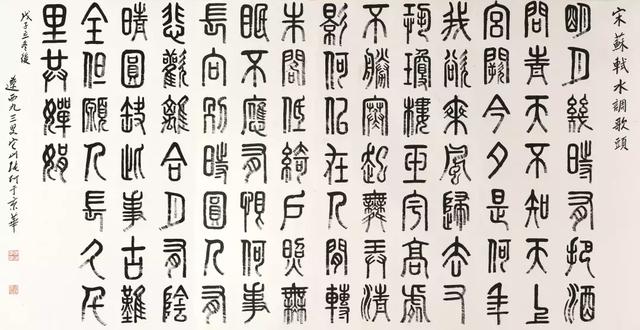 宋蘇軾水調歌頭
明月幾時有把酒
問青天不知天上
宮闕今夕是何年
我欲乘風歸去又
恐瓊樓玉宇高處
不勝寒起舞弄清
影何似在人間轉
朱閣低綺戶照無
眠不應有恨何事
長向別時圓人有
悲歡離合月有陰
晴圓缺此事古難
全但願人長久千
里共嬋娟
戊子立冬後
京華